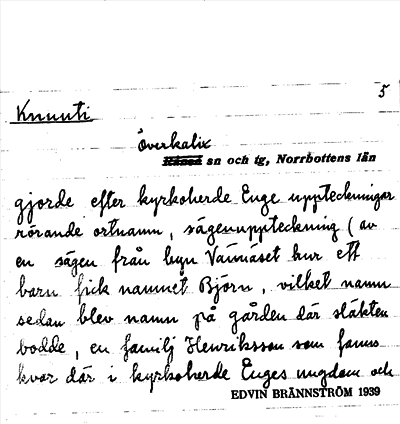 5
Knuuti
Överkalix
sn och tg, Norrbottens län
gjorde efter kyrkoherde Enge uppteckningar
rörande ortnamn, sägenuppteckning (av
en sägen från byn Vännäset hur ett
barn fick namnet Björn, vilket namn
sedan blev namn på gården där släkten
bodde, en familj Henriksson som fanns
kvar där i kyrkoherde Enges ungdom och
EDVIN BRÄNNSTRÖM 1939